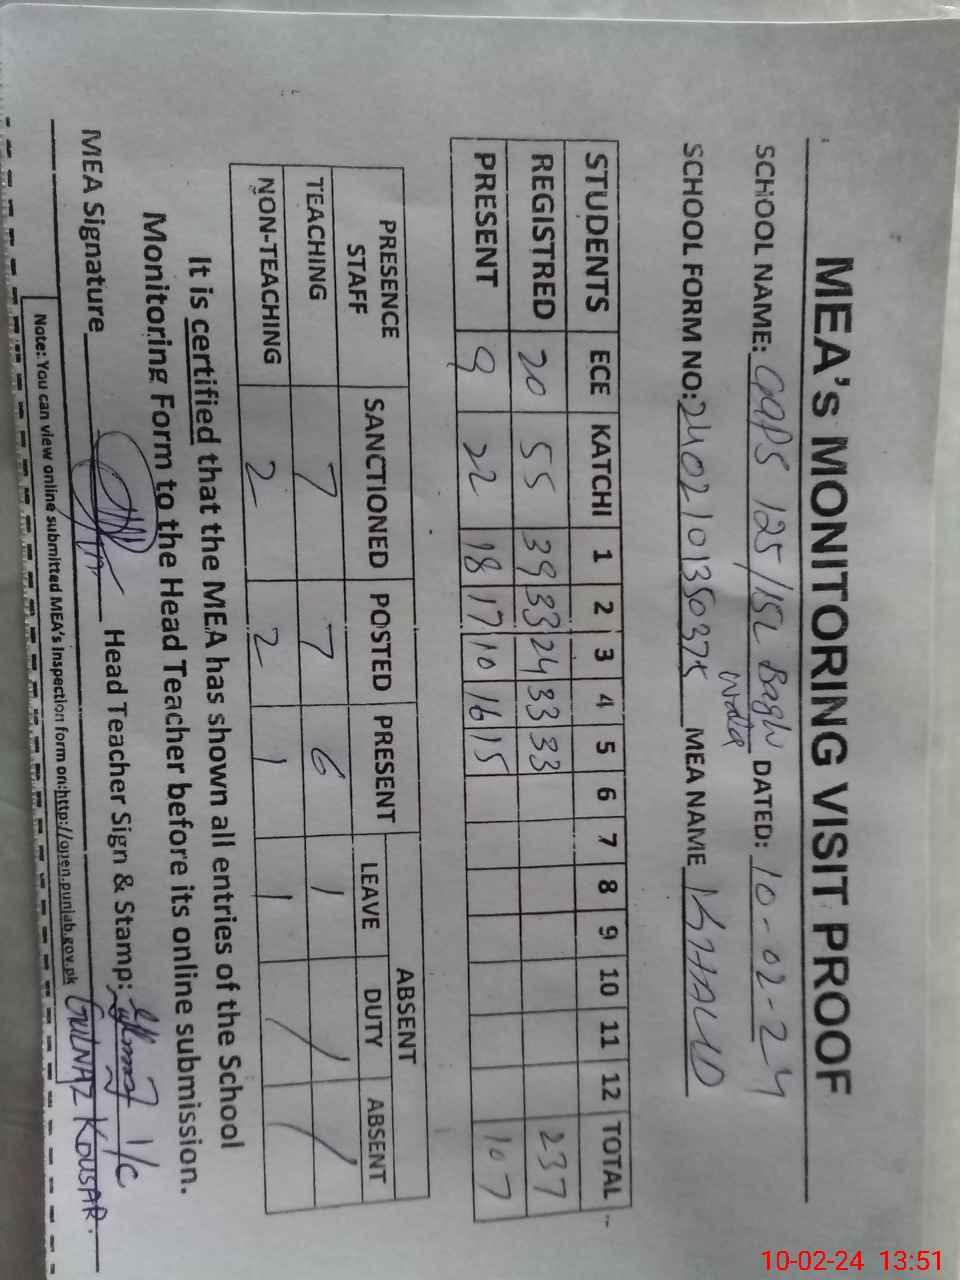 MEA's MONITORING VISIT PROOF
SCHOOL NAME: GGPS 125/15L Bagh wala DATED: 10-02-24
SCHOOL FORM NO: 2402101350375 MEA NAME KHALID
STUDENTS ECE KATCHI 1 2 3 4 5 6 7 8 9 10 11 12 TOTAL
REGISTRED 20 55 39 33 24 33 33 237
PRESENT 9 22 18 17 10 16 15 107
PRESENCE STAFF SANCTIONED POSTED PRESENT ABSENT
LEAVE DUTY ABSENT
TEACHING 7 7 6 1 / /
NON-TEACHING 2 2 1 1 /
It is certified that the MEA has shown all entries of the School
Monitoring Form to the Head Teacher before its online submission.
MEA Signature Head Teacher Sign & Stamp: I/C
GULNAZ KOUSAR.
Note: You can view online submitted MEA's inspection form on:http://open.punjab.gov.pk
10-02-24 13:51